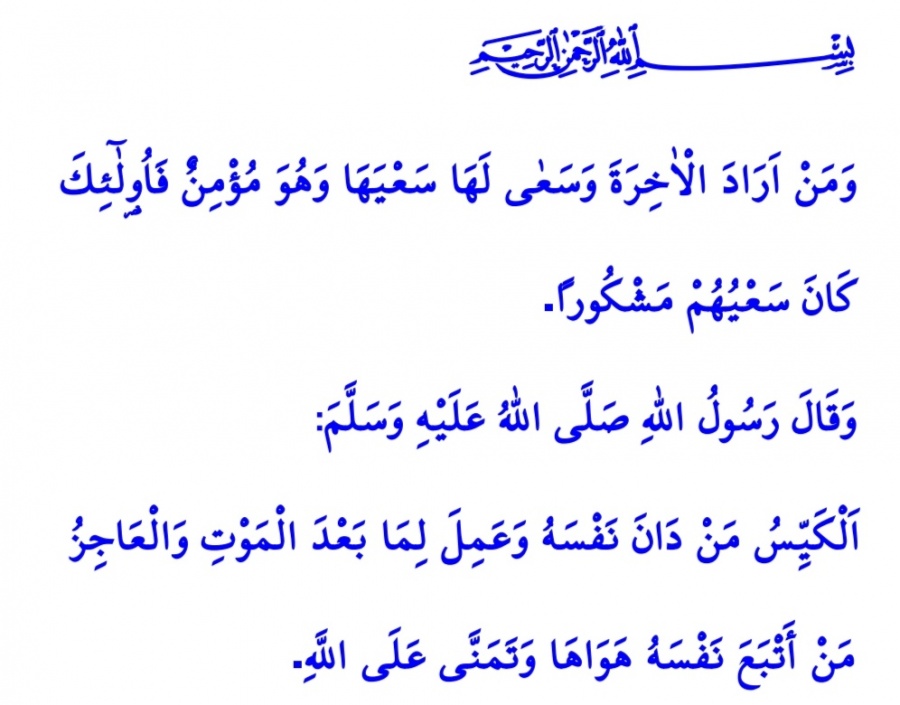 بِسْمِ اللهِ الرَّحْمٰنِ الرَّحِيمِ
وَمَنْ اَرَادَ الْاٰخِرَةَ وَسَعٰى لَهَا سَعْيَهَا وَهُوَ مُؤْمِنٌ فَاُو۬لٰٓئِكَ
كَانَ سَعْيُهُمْ مَشْكُورًا.
وَقَالَ رَسُولُ اللهِ صَلَّى اللهُ عَلَيْهِ وَسَلَّمَ:
اَلْكَيِّسُ مَنْ دَانَ نَفْسَهُ وَعَمِلَ لِمَا بَعْدَ الْمَوْتِ وَالْعَاجِزُ
مَنْ أَتْبَعَ نَفْسَهُ هَوَاهَا وَتَمَنَّى عَلَى اللَّهِ.